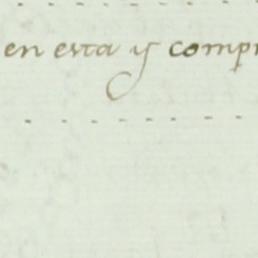 en esta y comp